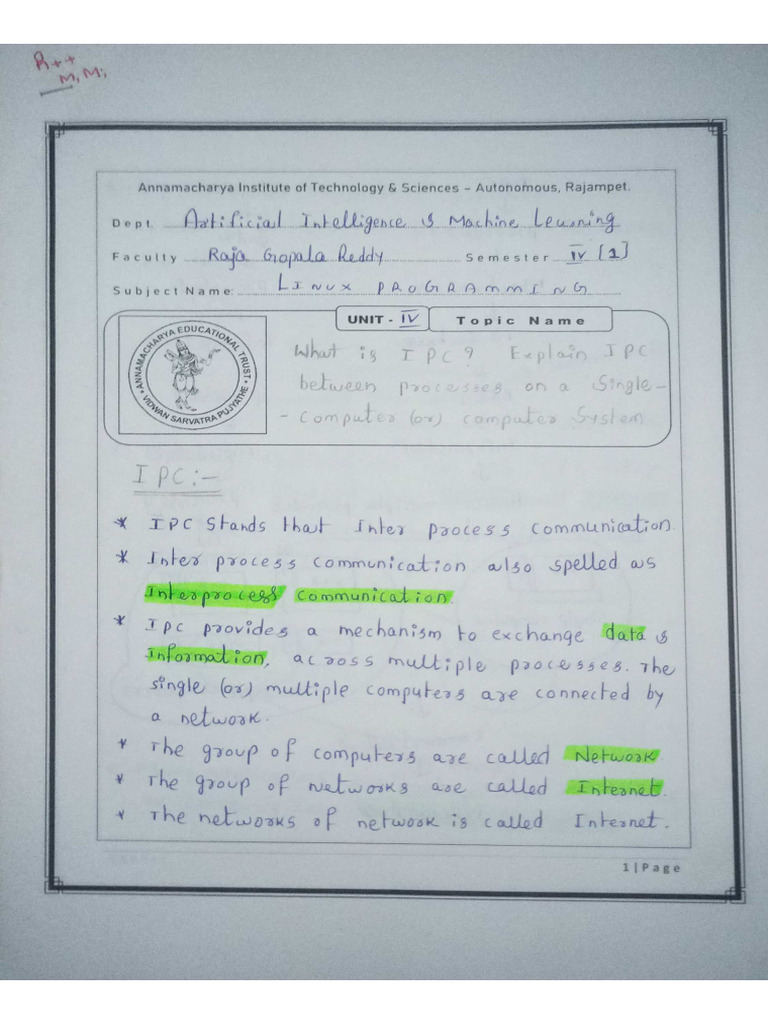 R++
M. M.
Annamacharya Institute of Technology & Sciences – Autonomous, Rajampet.
Dept Artificial Intelligence & Machine Learning
Faculty Raja Gopala Reddy Semester IV [1]
Subject Name: LINUX PROGRAMMING
UNIT - IV Topic Name
ANNAMACHARYA EDUCATIONAL TRUST
VIDWAN SARVATRA PUJYATHE
What is IPC? Explain IPC
between processes on a Single-
- Computer (or) computer System
IPC:-
* IPC Stands that Inter process communication.
* Inter process communication also spelled as
Interprocess communication.
* IPC provides a mechanism to exchange data &
Information, across multiple processes. The
single (or) multiple computers are connected by
a network.
* The group of computers are called Network.
* The group of networks are called Internet.
* The networks of network is called Internet.
1 | Page